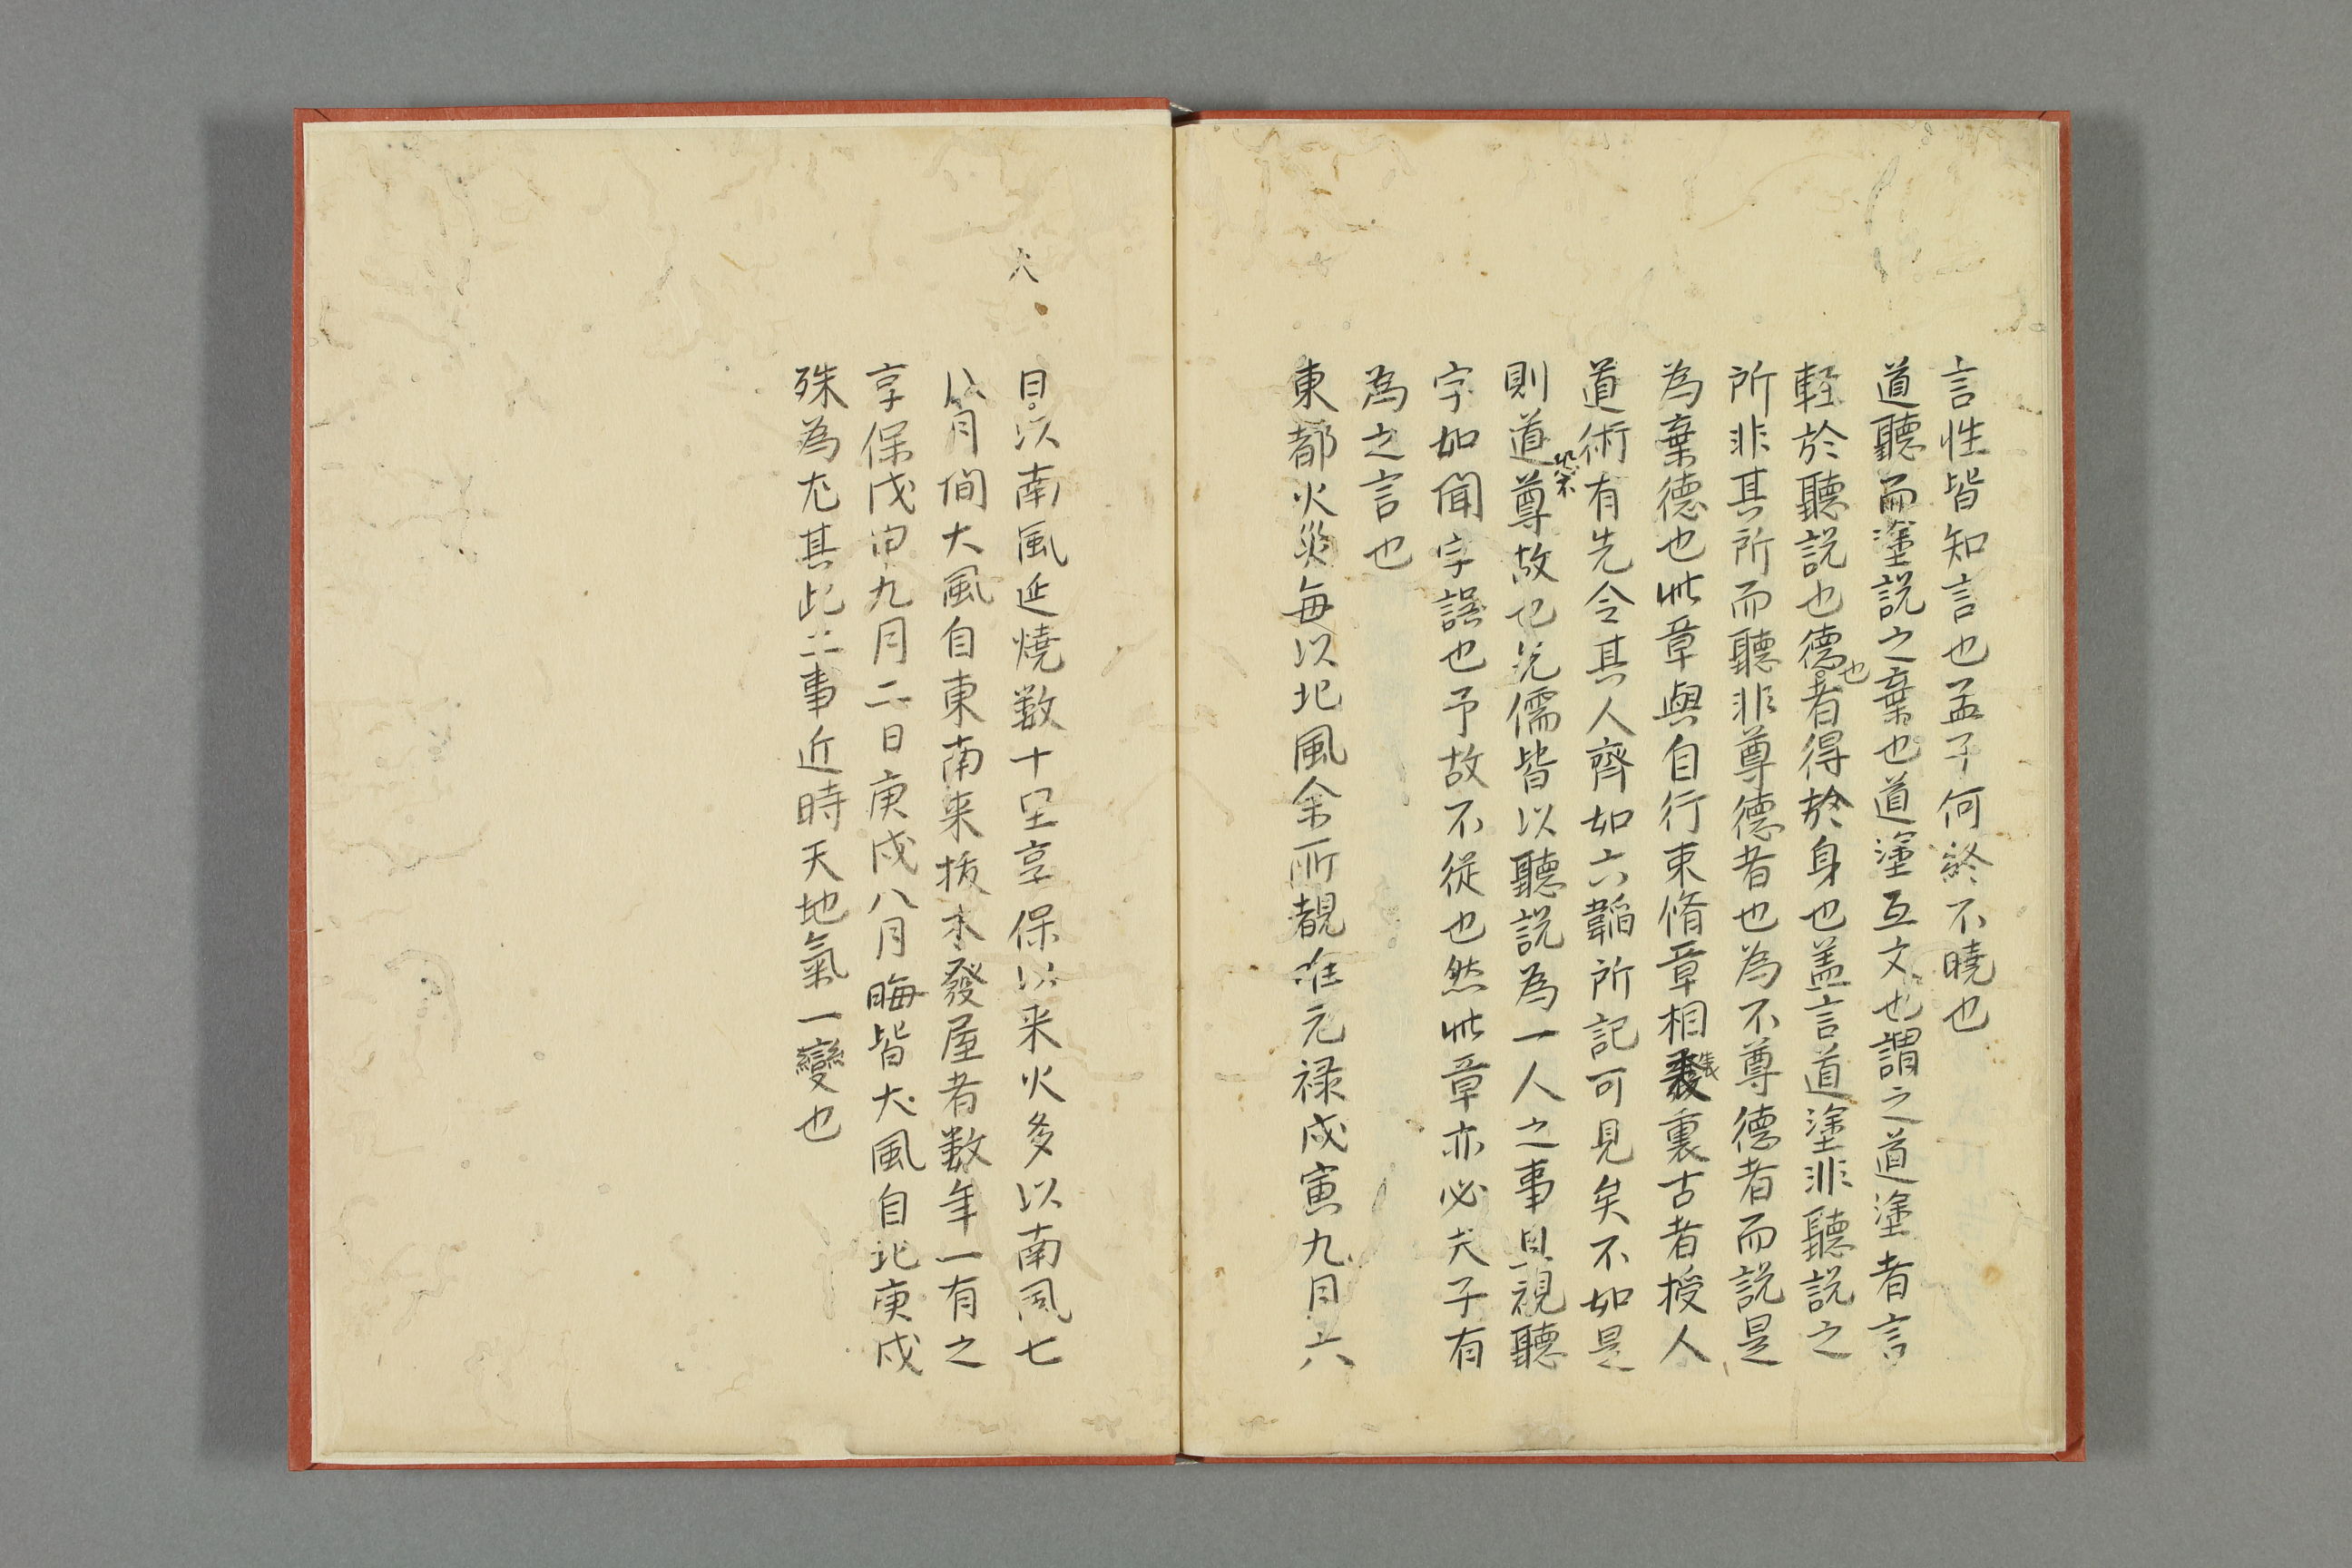 言性皆知言也孟子何終不曉也
道聽而塗説之棄也道塗互文也謂之道塗者言
軽於聽説也德也者得於身也盖言道塗非聽説之
所非其所而聽非尊德者也為不尊德者而説是
為棄德也此章與自行束脩章相表裏古者授人
道術有先令其人齊如六韜所記可見矣不如是
則道不尊故也先儒皆以聽説為一人之事且視聽
字如聞字誤也予故不從也然此章亦必夫子有
為之言也
東都火災毎以北風余所覩唯元禄戊寅九月六
火
日以南風延焼数十里享保以来火多以南風七
八月間大風自東南来抜木發屋者数年一有之
享保戊申九月二日庚戌八月晦皆大風自北庚戌
殊為尤甚此二事近時天地氣一變也